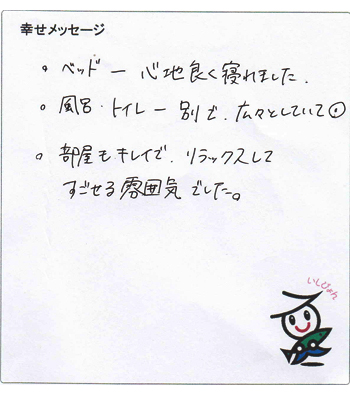 幸せメッセージ
。ベッド ー 心地良く寝れました.
。風呂・トイレ ー 別で、広々としていて⊙
。部屋もキレイで、リラックスして
すごせる雰囲気でした。